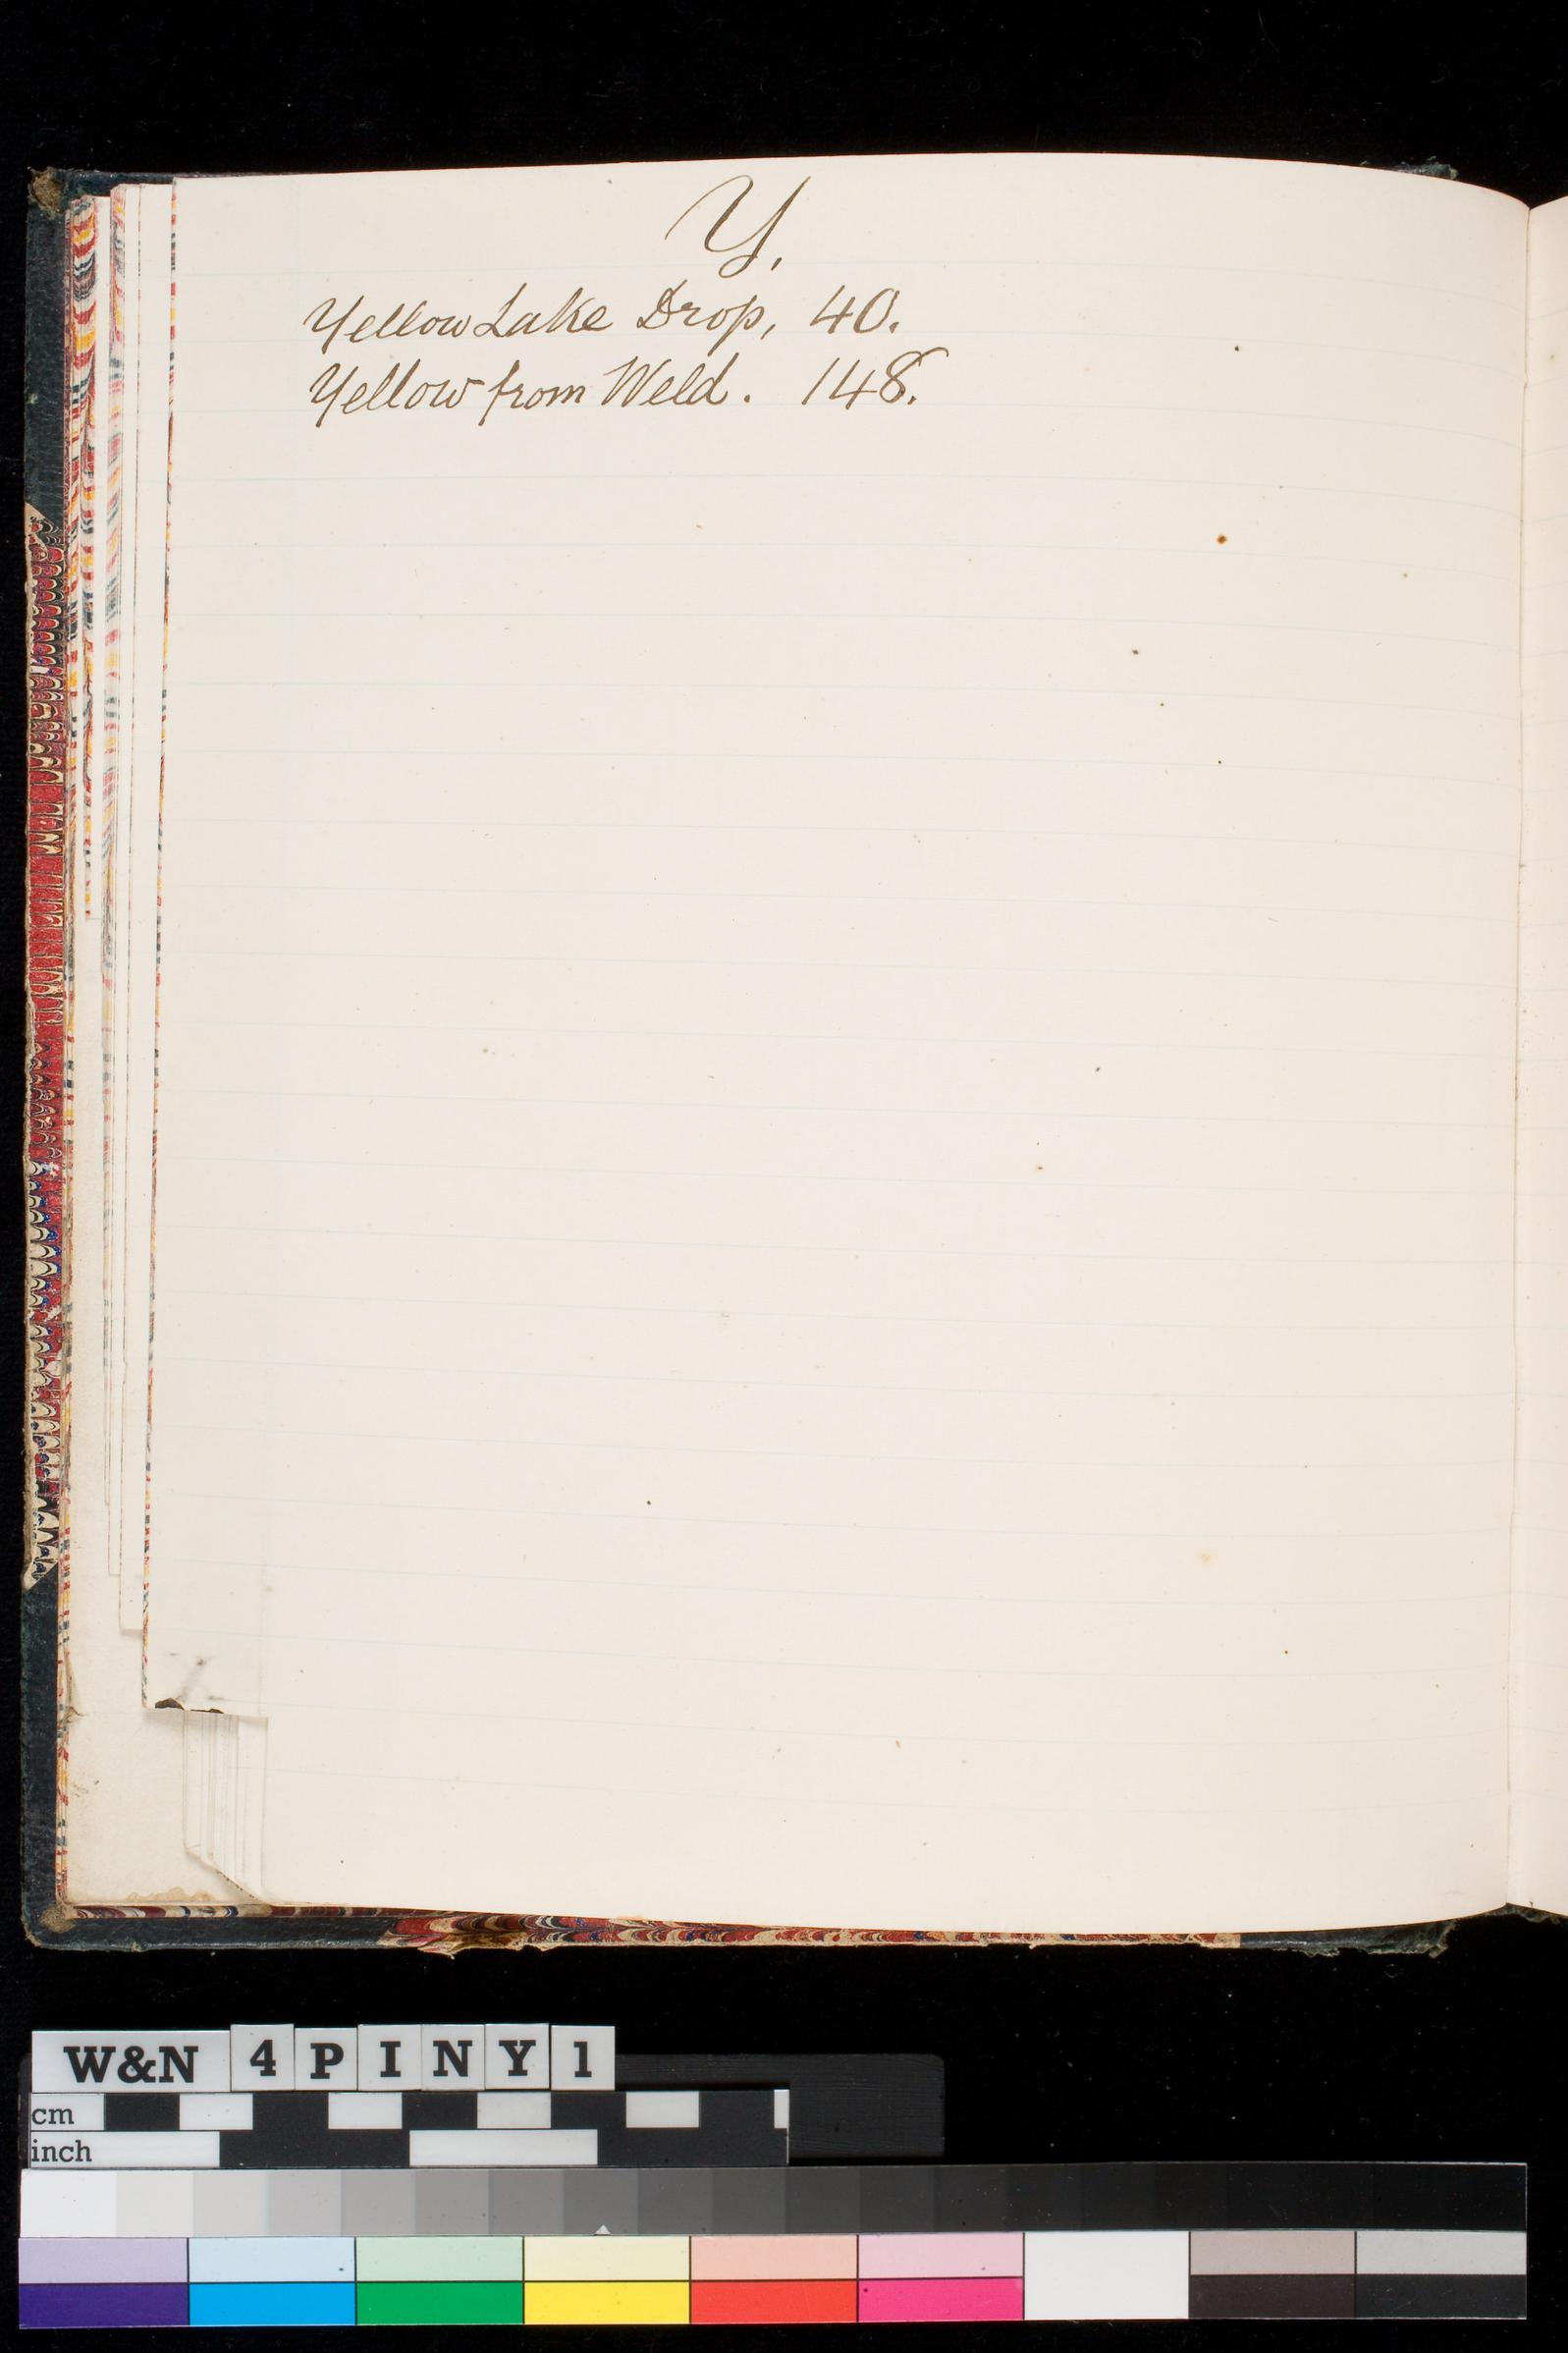 Y.
Yellow Lake Drop, 40.
Yellow from Weld. 148.
W&N 4 P I N Y 1
cm
inch